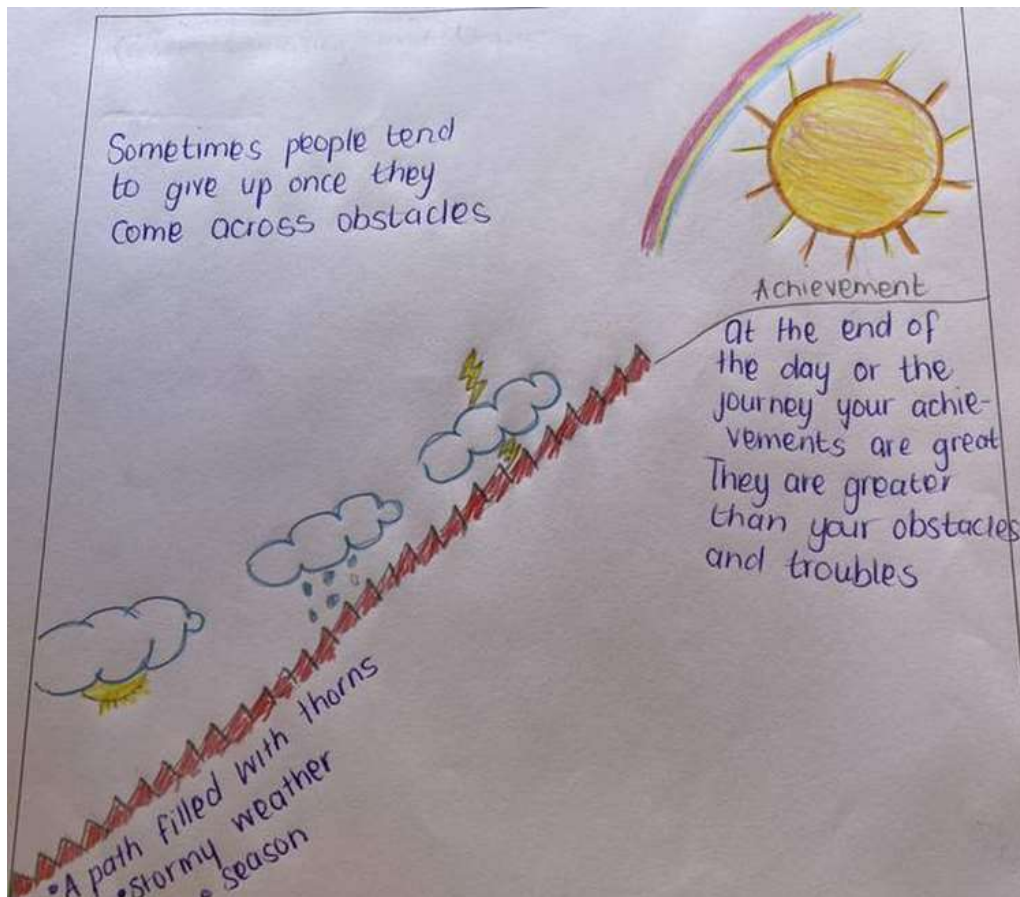 Sometimes people tend
to give up once they
come across obstacles
Achievement
at the end of
the day or the
journey your achie-
vements are great
They are greater
than your obstacles
and troubles
•A path filled with thorns
•stormy weather
• season